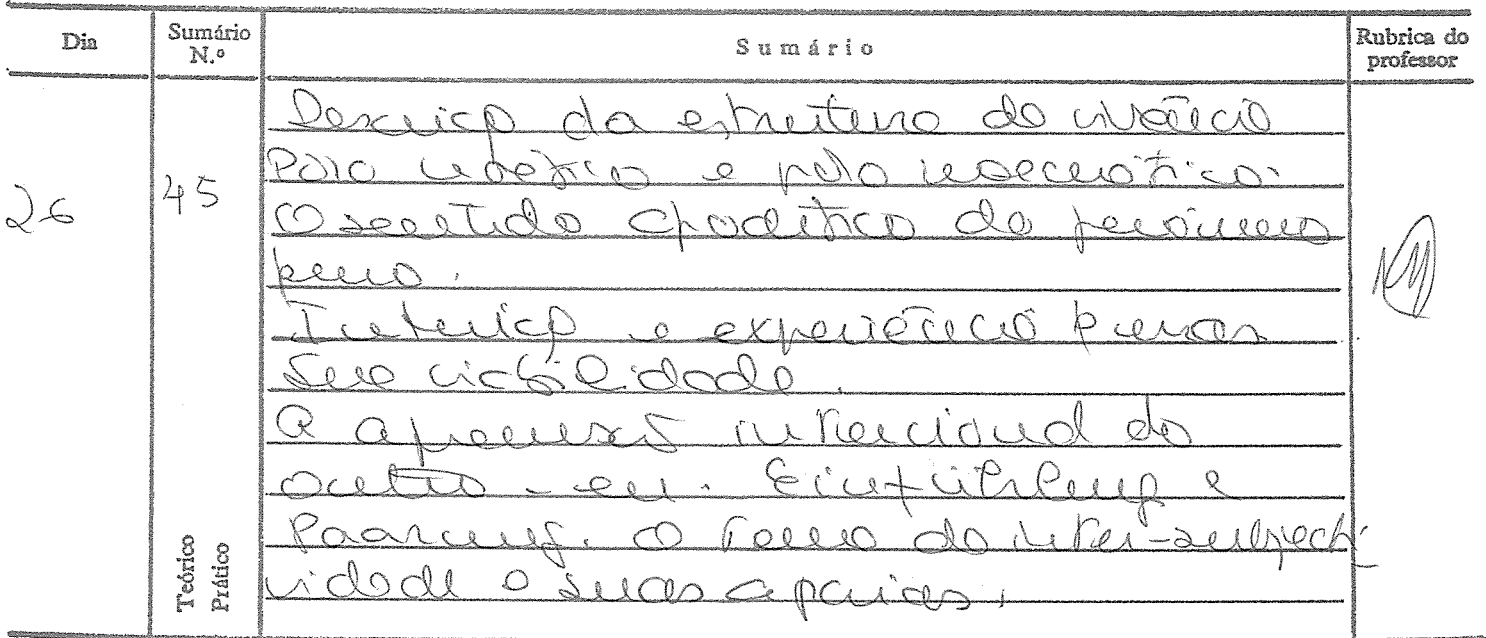 Dia
Sumário N.º
Sumário
Rubrica do professor
26
45
Descrição da estrutura da vivência
Polo noético e polo noemático.
O sentido apodítico do fenómeno
puro.
Intuição e experiência puras
Sua viabilidade.
A apreensão intencional do
outro-eu. Einfühlung e
Paarung. O tema da inter-subjecti-
vidade e suas aporias.
Teórico
Prático